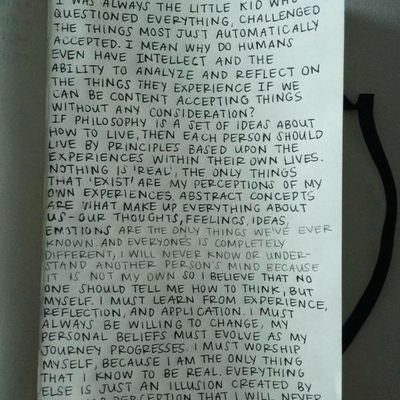 I WAS ALWAYS THE LITTLE KID WHO
QUESTIONED EVERYTHING, CHALLENGED
THE THINGS MOST JUST AUTOMATICALLY
ACCEPTED. I MEAN WHY DO HUMANS
EVEN HAVE INTELLECT AND THE
ABILITY TO ANALYZE AND REFLECT ON
THE THINGS THEY EXPERIENCE IF WE
CAN BE CONTENT ACCEPTING THINGS
WITHOUT ANY CONSIDERATION?
IF PHILOSOPHY IS A SET OF IDEAS ABOUT
HOW TO LIVE, THEN EACH PERSON SHOULD
LIVE BY PRINCIPLES BASED UPON THE
EXPERIENCES WITHIN THEIR OWN LIVES.
NOTHING IS 'REAL', THE ONLY THINGS
THAT 'EXIST' ARE MY PERCEPTIONS OF MY
OWN EXPERIENCES. ABSTRACT CONCEPTS
ARE WHAT MAKE UP EVERYTHING ABOUT
US - OUR THOUGHTS, FEELINGS, IDEAS,
EMOTIONS ARE THE ONLY THINGS WE'VE EVER
KNOWN. AND EVERYONES IS COMPLETELY
DIFFERENT, I WILL NEVER KNOW OR UNDER-
STAND ANOTHER PERSON'S MIND BECAUSE
IT IS NOT MY OWN. SO I BELIEVE THAT NO
ONE SHOULD TELL ME HOW TO THINK, BUT
MYSELF. I MUST LEARN FROM EXPERIENCE,
REFLECTION, AND APPLICATION. I MUST
ALWAYS BE WILLING TO CHANGE, MY
PERSONAL BELIEFS MUST EVOLVE AS MY
JOURNEY PROGRESSES. I MUST WORSHIP
MYSELF, BECAUSE I AM THE ONLY THING
THAT I KNOW TO BE REAL. EVERYTHING
ELSE IS JUST AN ILLUSION CREATED BY
PERCEPTION THAT I WILL NEVER